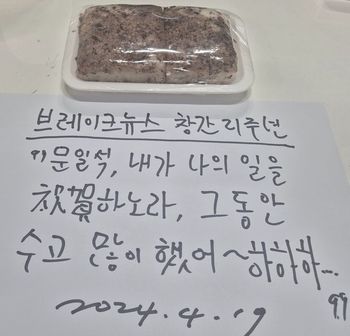 브레이크뉴스 창간 21주년
문일석, 내가 나의 일을
祝賀하노라, 그동안
수고 많이 했어~하하하...
2024. 4. 19